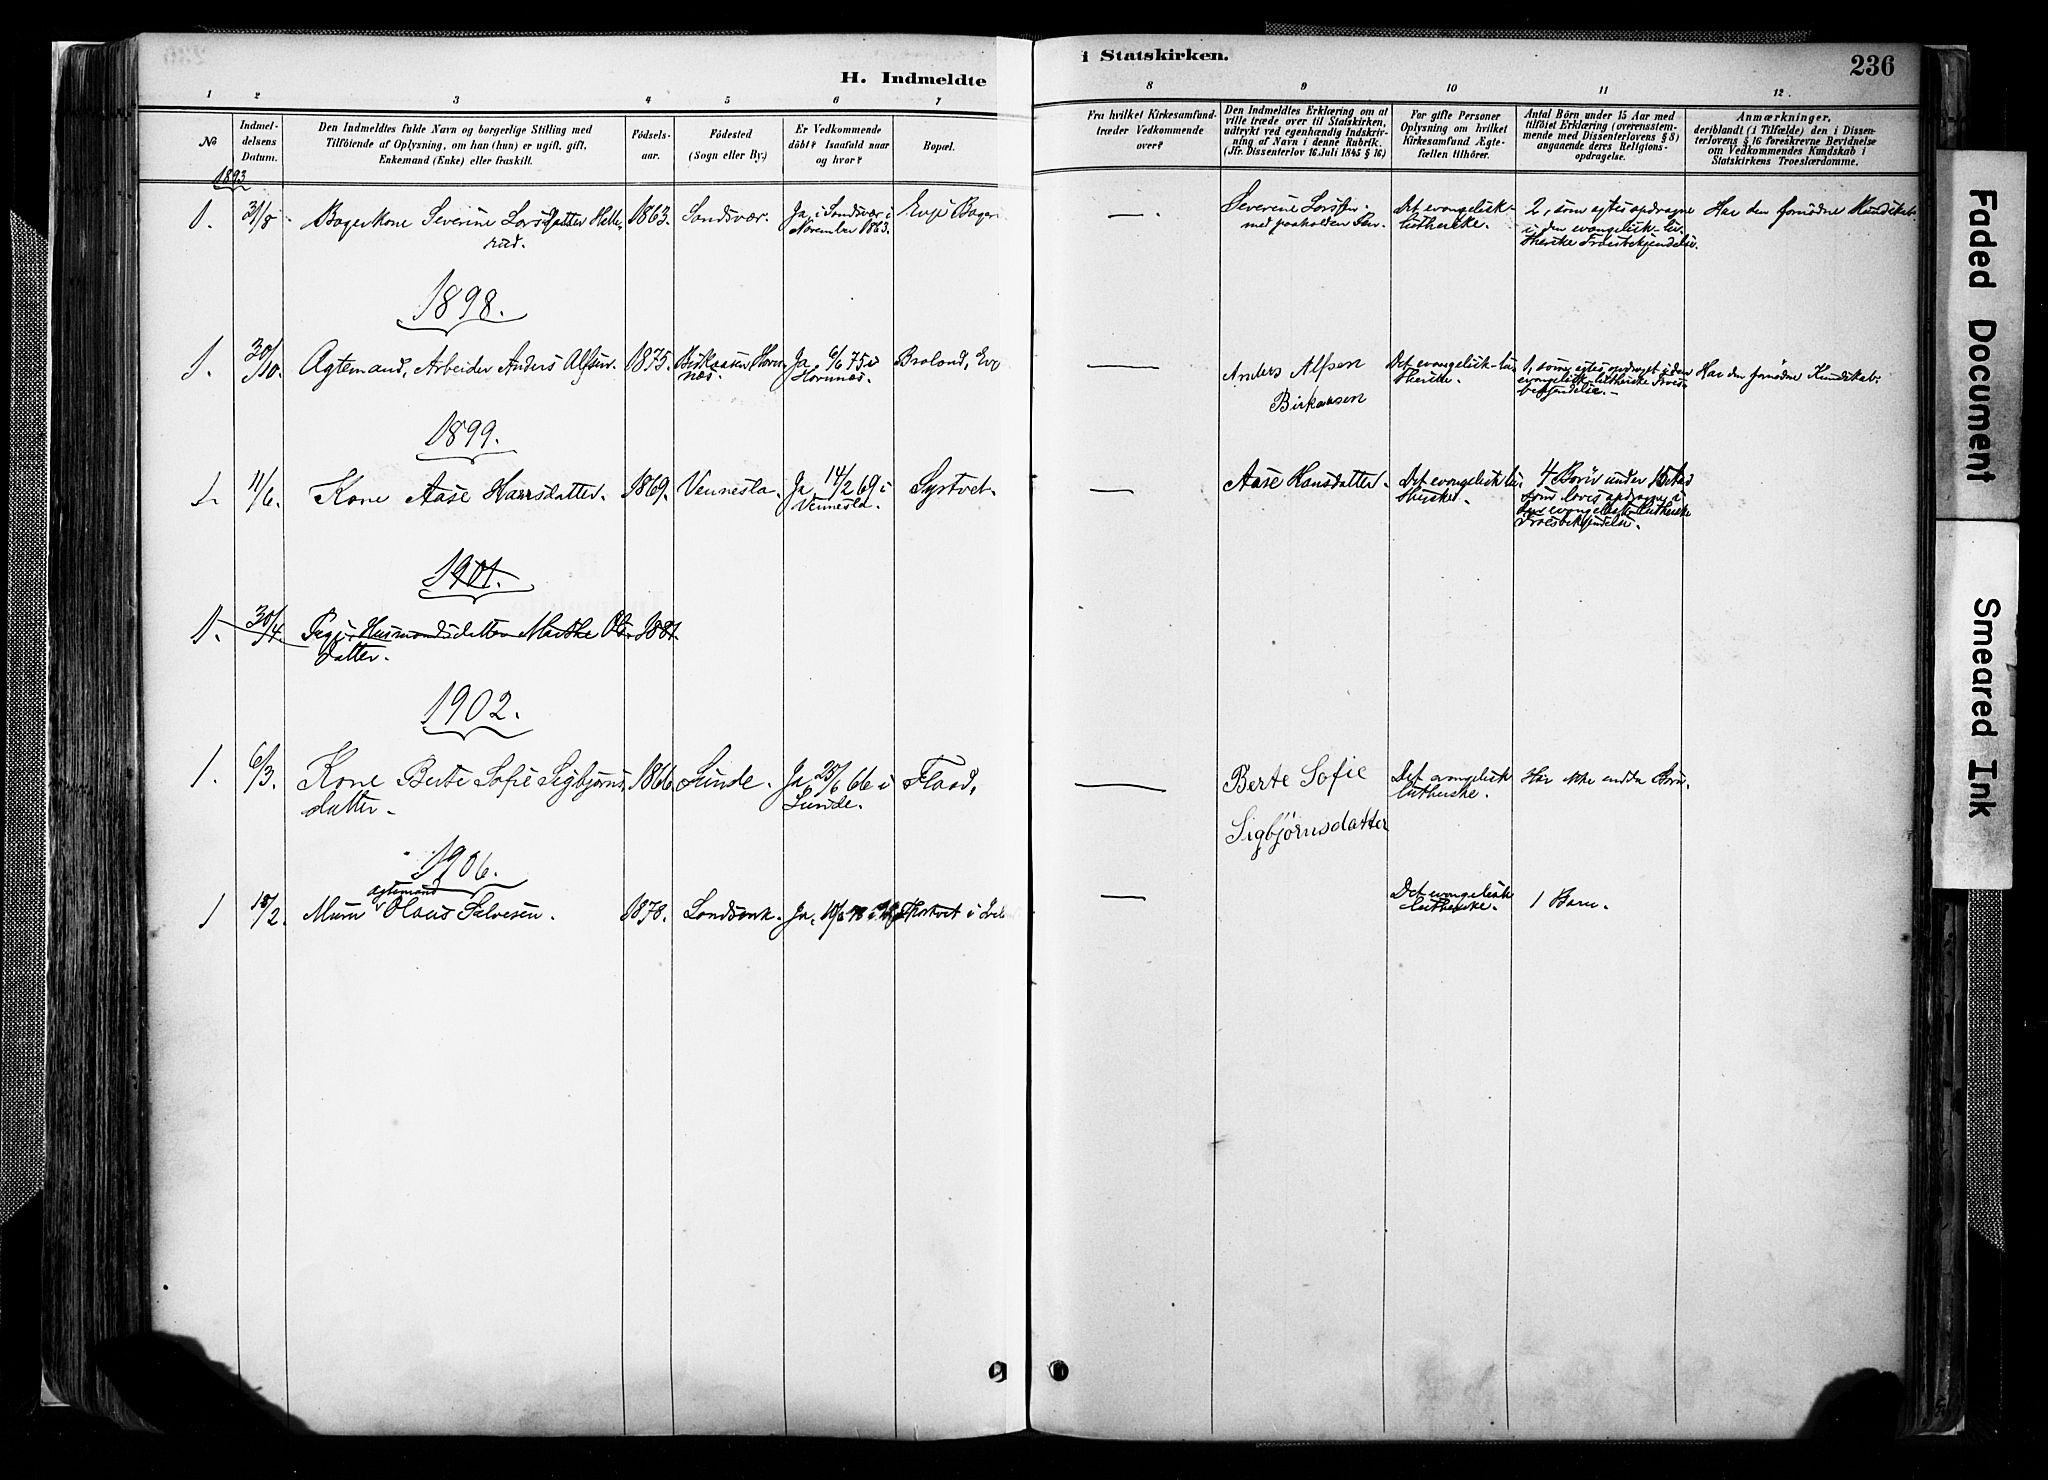 H. Indmeldte
i Statskirken.
236
1 2 3 4 5 6 7 8 9 10 11 12.
№
Indmel-
delsens
Datum.
Den Indmeldtes fulde Navn og borgerlige Stilling med
Tilföiende af Oplysning, om han (hun) er ugift, gift,
Enkemand (Enke) eller fraskilt.
Födsels-
aar.
Födested
(Sogn eller By.)
Er Vedkommende
döbt? Isaafald naar
og hvor?
Bopæl.
Fra hvilket Kirkesamfund
træder Vedkommende
over?
Den Indmeldtes Erklæring om at
ville træde over til Statskirken,
udtrykt ved egenhændig Indskriv-
ning af Navn i denne Rubrik.
(Jfr. Dissenterlov 16. Juli 1845 § 16.)
For gifte Personer
Oplysning om hvilket
Kirkesamfund Ægte-
fællen tilhörer.
Antal Börn under 15 Aar med
tilföiet Erklæring (overensstem-
mende med Dissenterlovens § 8)
angaaende deres Religions-
opdragelse.
Anmærkninger,
deriblandt (i Tilfælde) den i Dissen-
terlovens § 16 foreskrevne Bevidnelse
om Vedkommendes Kundskab i
Statskirkens Troeslærdomme.
1893
1. 31/8 Bagerkone Severine Larsdatter Helle-
rud.
1863. Sandsvær.
Ja, i Sandsvær i
November 1863.
Evje
Severine
med paaholden Pen.
Det evangelisk-
lutherske.
2, som agtes opdragne
i den evangelisk-lu-
therske Troesbekjendelse.
Har den fornødne Kundskab.
1898.
1. 30/10. Ægtemand, Arbeider Anders Alfsen. 1875.
Birkaasen, Horn-
næs.
Ja 6/6 75 i
Hornnæs.
Anders Alfsen
Birkaasen
Det evangelisk-lu-
therske.
1, som agtes opdraget i den
evangelisk-lutherske Troes-
bekjendelse.
Har den fornødne Kundskab.
1899.
11/6. Kone Aase Hansdatter. 1869. Vennesla.
Ja 14/2 69 i
Vennesla.
Syrtvet.
Aase Hansdatter.
Det evangelisk lu-
therske.
4 Børn under 15 Aar
som loves opdragne i
den evangelisk-lutherske
Troesbekjendelse.
1901.
1. 30/4. Pige, Husmandsdatter Marthe Ols- 1881.
datter.
1902.
1. 6/3. Kone Berte Sofie Sigbjørns-
datter.
1866. Lunde.
Ja 25/6 66 i
Lunde.
Flaad.
Berte Sofie
Sigbjørnsdatter
Det evangelisk
lutherske.
Har ikke endda Børn.
1906.
Ægtemand
1 18/2. Murer Olaus Salvesen. 1878. Landvik. Ja,
Det evangelisk
lutherske.
1 Barn.
Faded Document
Smeared Ink